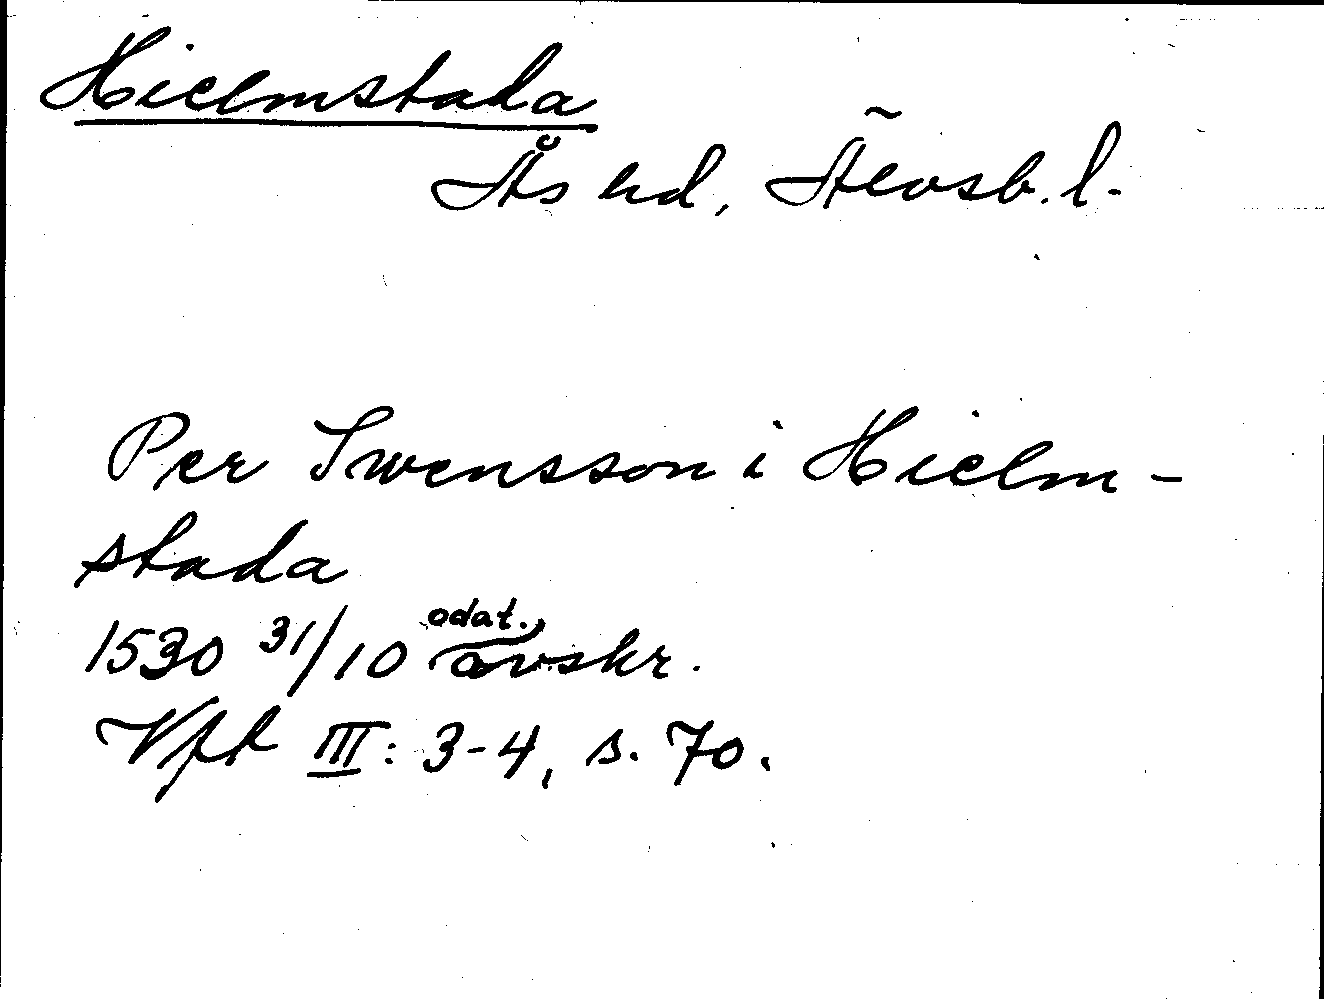 Hielmstada
Ås hd, Älvsb. l.
Per Swensson i Hielm-
stada
1530 31/10 odat., avskr.
Vft III: 3-4, s. 70.